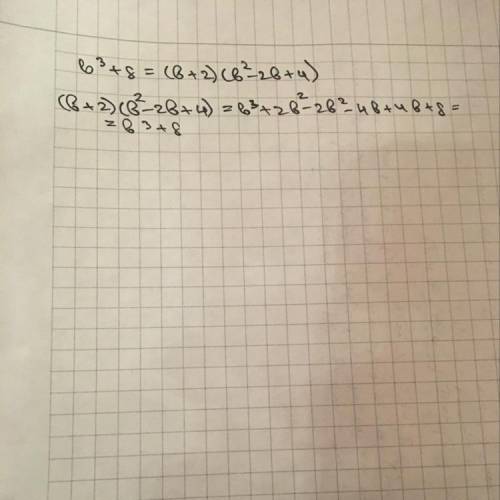 b³+8 = (b+2)(b²-2b+4)
(b+2)(b²-2b+4) = b³+2b²-2b²-4b+4b+8 =
= b³+8